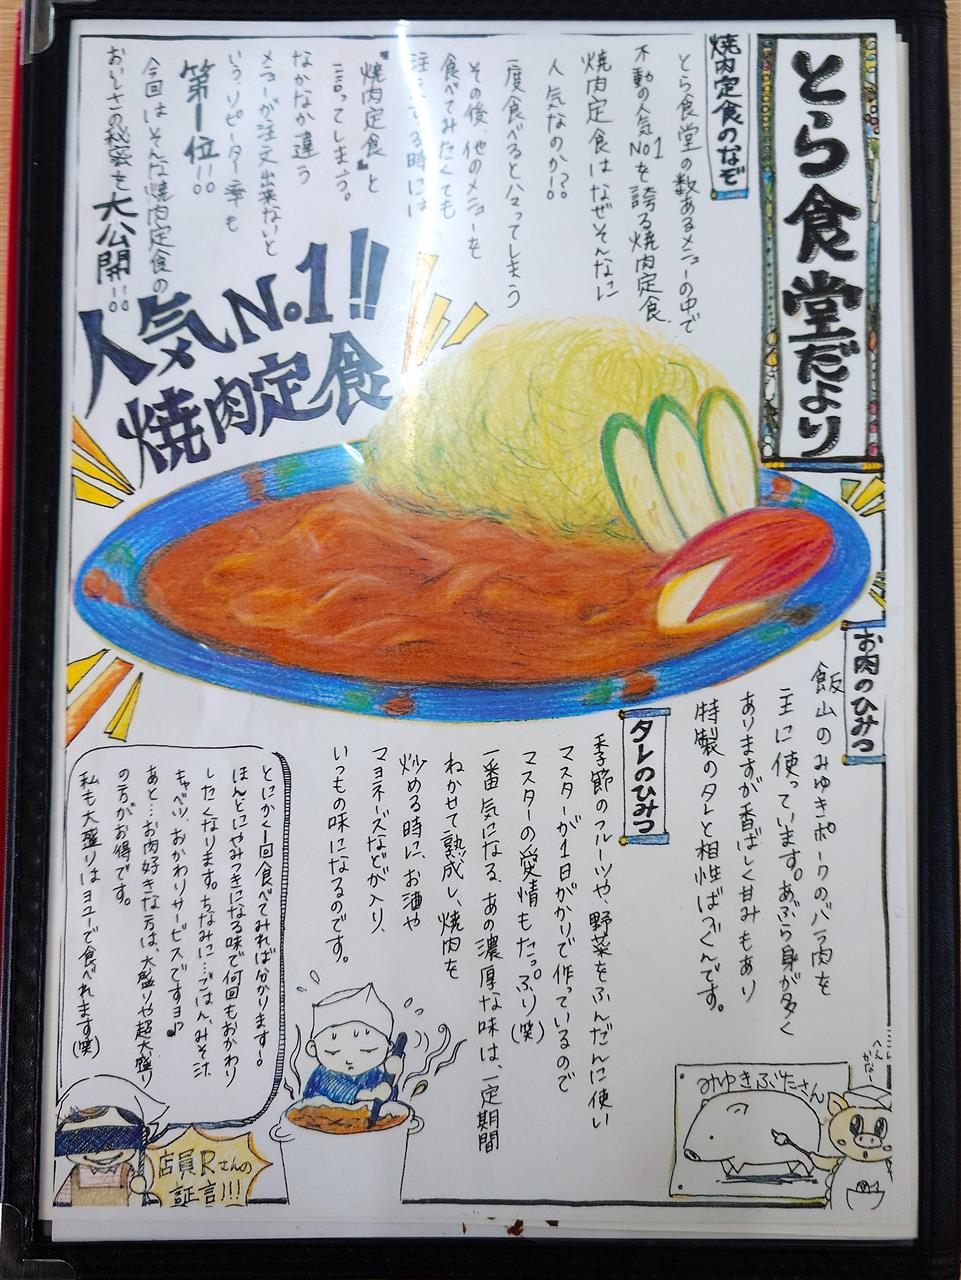 とら食堂だより
焼肉定食のなぞ
とら食堂の数あるメニューの中で
不動の人気No1を誇る焼肉定食
焼肉定食はなぜそんなに
人気なのか!?
一度食べるとハマってしまう
その後、他のメニューを
食べてみたくても
注文する時には
『焼肉定食』と
言ってしまう。
なかなか違う
メニューが注文出来ないと
いう、リピーター率も
第1位!!
今回はそんな焼肉定食の
おいしさの秘密を大公開!!
人気No.1!!
焼肉定食
お肉のひみつ
飯山のみゆきポークのバラ肉を
主に使っています。あぶら身が多く
ありますが香ばしく甘みもあり
特製のタレと相性ばつぐんです。
タレのひみつ
季節のフルーツや、野菜をふんだんに使い
マスターが1日がかりで作っているので
マスターの愛情もたっぷり(笑)
一番気になる、あの濃厚な味は、一定期間
ねかせて熟成し、焼肉を
炒める時に、お酒や
マヨネーズなどが入り、
いつもの味になるのです。
とにかく1回食べてみれば分かります!。
ほんとにやみつきになる味で何回もおかわり
したくなります。ちなみに…ごはん、みそ汁、
キャベツ、おかわりサービスですヨ♪
あと…お肉好きな方は、大盛りや超大盛り
の方がお得です。
私も大盛りはヨユーで食べれます(笑)
店員Rさんの
証言!!!
みゆきぶたさん
ここ
へん
かな